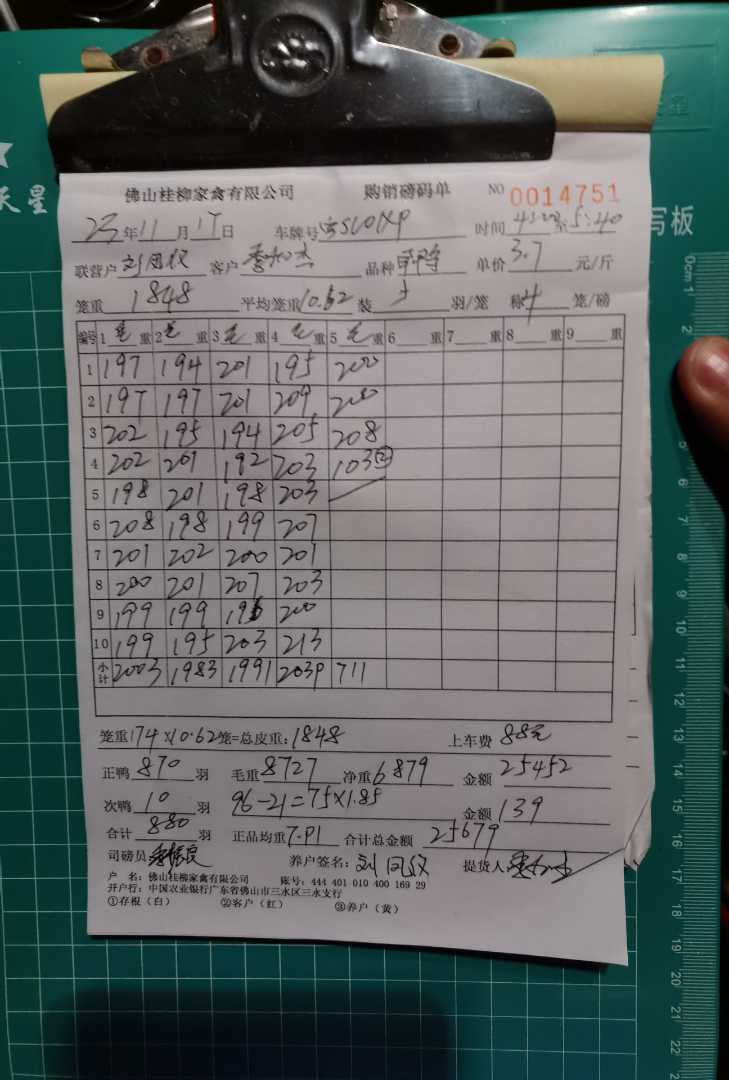 佛山桂柳家禽有限公司 购销磅码单 NO 0014751
23年11月17日 车牌号 时间 至5:40
联营户 客户 品种 单价3.7元/斤
笼重1848 平均笼重10.62 装5羽/笼 称4笼/磅
编号 1毛重 2毛重 3毛重 4毛重 5毛重 6重 7重 8重 9重
1 197 194 201 195 200
2 197 197 201 209 200
3 202 195 194 205 208
4 202 201 192 203 103②
5 198 201 198 203
6 208 198 199 207
7 201 202 200 201
8 200 201 207 203
9 199 199 196 200
10 199 195 203 213
小计 2003 1983 1991 2039 711
笼重174×10.62笼=总皮重:1848 上车费 88元
正鸭870羽 毛重8727 净重6879 金额25452
次鸭10羽 96-21=75×1.85 金额139
合计880羽 正品均重7.91 合计总金额25679
司磅员 养户签名: 刘 提货人
户 名:佛山桂柳家禽有限公司 账号:444 401 010 400 169 29
开户行:中国农业银行广东省佛山市三水区三水支行
①存根(白) ②客户(红) ③养户(黄)
天星
写板
0cm 1
2
5
6
7
8
9
10
11
12
13
14
15
16
17
18
19
20
21
22